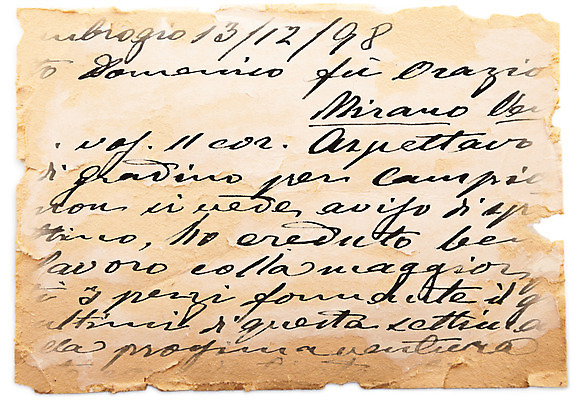 mbrogio 13/12/98
Domenico fù Orazio
Mirano Ve
vos. 11 cor. Aspettavo
di gradino per Campi
non si vede avviso di sp
ttino, ho creduto be
lavoro colla maggior
3 pezzi formante il g
ultimi di questa settim
da prossima ventura